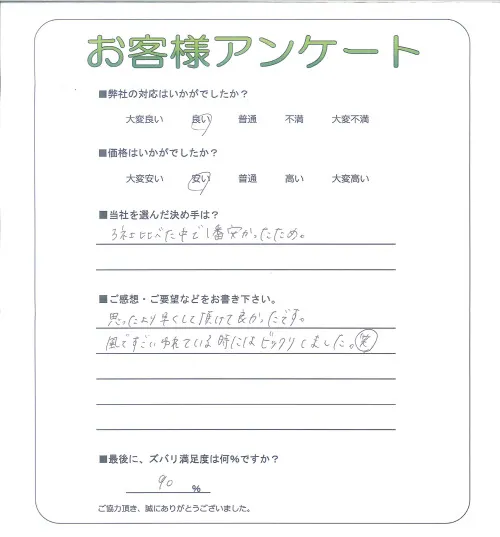 お客様アンケート
■弊社の対応はいかがでしたか?
大変良い 良い 普通 不満 大変不満
■価格はいかがでしたか?
大変安い 安い 普通 高い 大変高い
■当社を選んだ決め手は?
3社比べた中で1番安かったため。
■ご感想・ご要望などをお書き下さい。
思ったより早くして頂けて良かったです。
風ですごいゆれている時にはビックリしました。笑
■最後に、ズバリ満足度は何%ですか?
90 %
ご協力頂き、誠にありがとうございました。